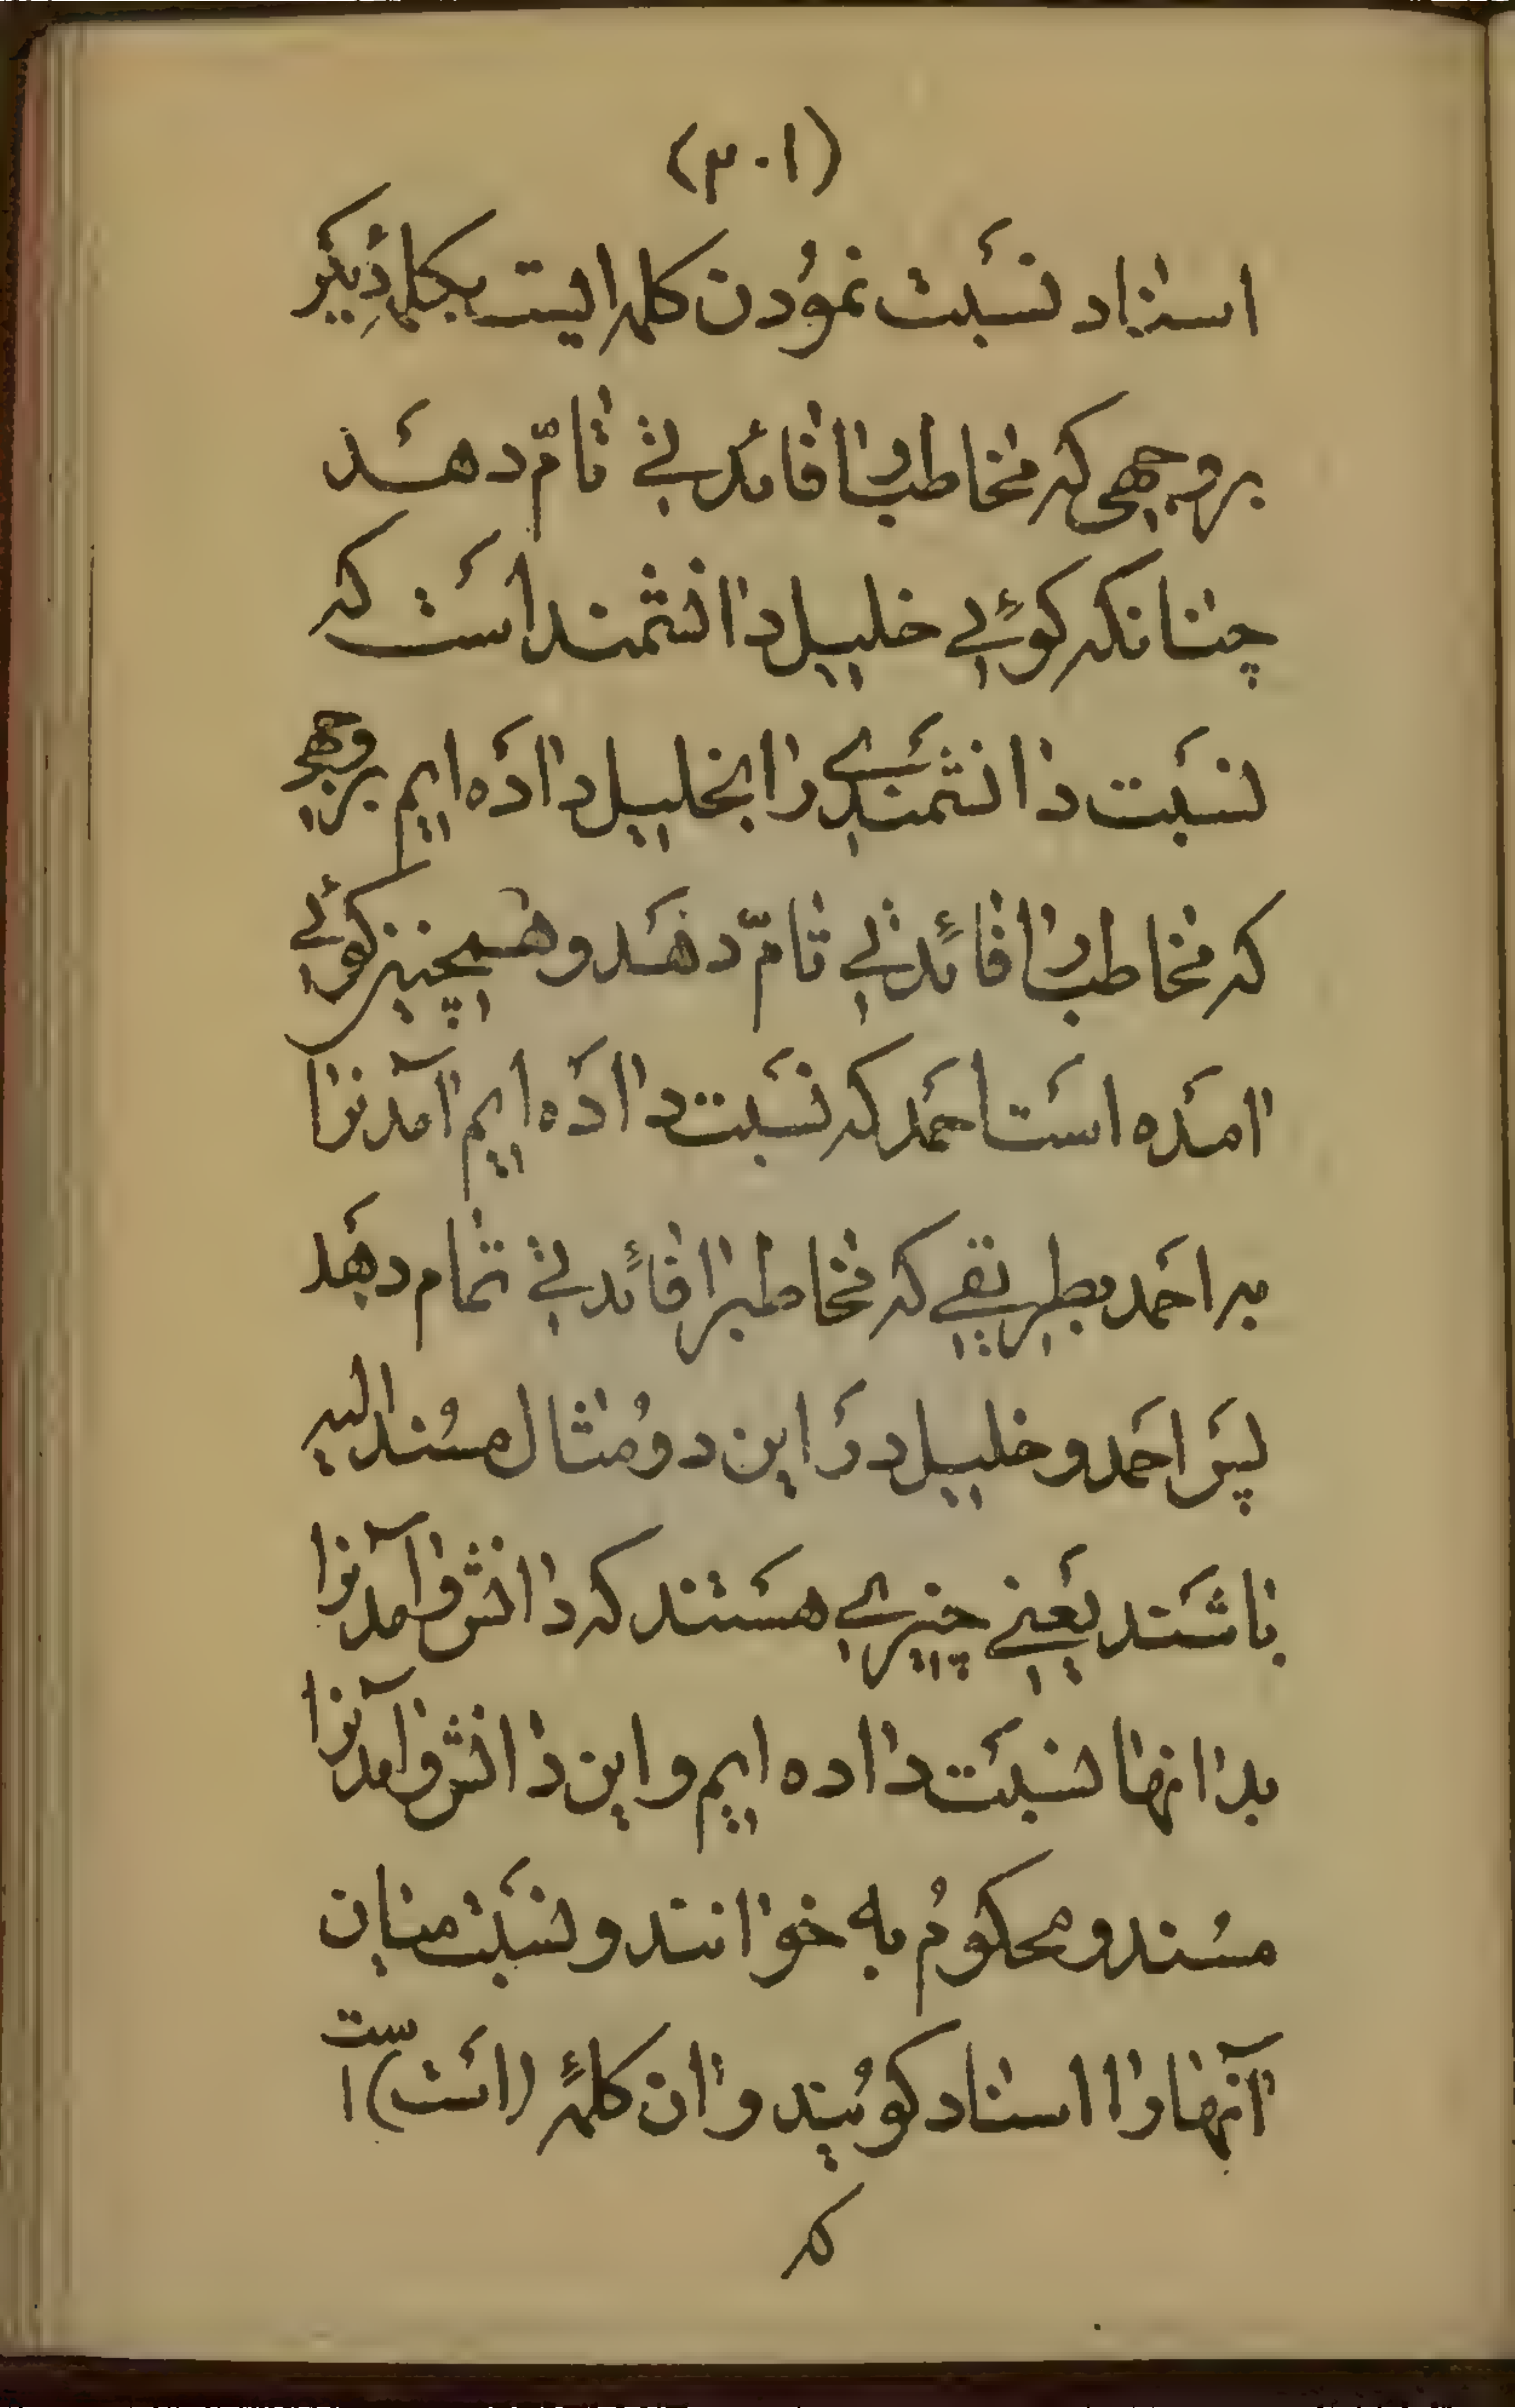 (۱۰۳)
اسناد نسبَت نموُدن کلمه ایست بکلمهٔ دِیکر
بر وجهی که مخاطب را فائدتی تامّ دهَد
چنانکه کوئی خلیل دانشمند اسَت که
نسبَت دانشمندی را بخلیل داده ایم بر وجهی
که مخاطب را فائدتی تامّ دهَد و همچنین کوئی
امَده اسَت احمَد که نسبَت داده ایم آمدنرا
بر احمَد بطریقی که مخاطبرا فائدتی تمام دهَد
پسَ احمَد و خلیل دَر این دو مُثال مسُند الیه
باشنَد یعَنی چیزی هسَتند که دانش و آمدنرا
بدانها نسبَت داده ایم و این دانش و آمدنرا
مسُند و محکومُ به خوانند و نسبَت میان
آنها را اسناد کوئیند و ان کلمهٔ (اسَت) است
که